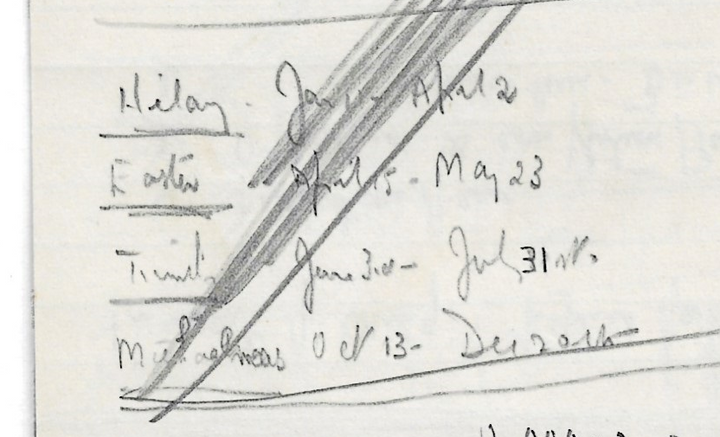 Hilary - Jan 11 - April 2
Easter - April 15 - May 23
Trinity June 3rd - July 31st.
Michaelmas Oct 13 - Dec 20th